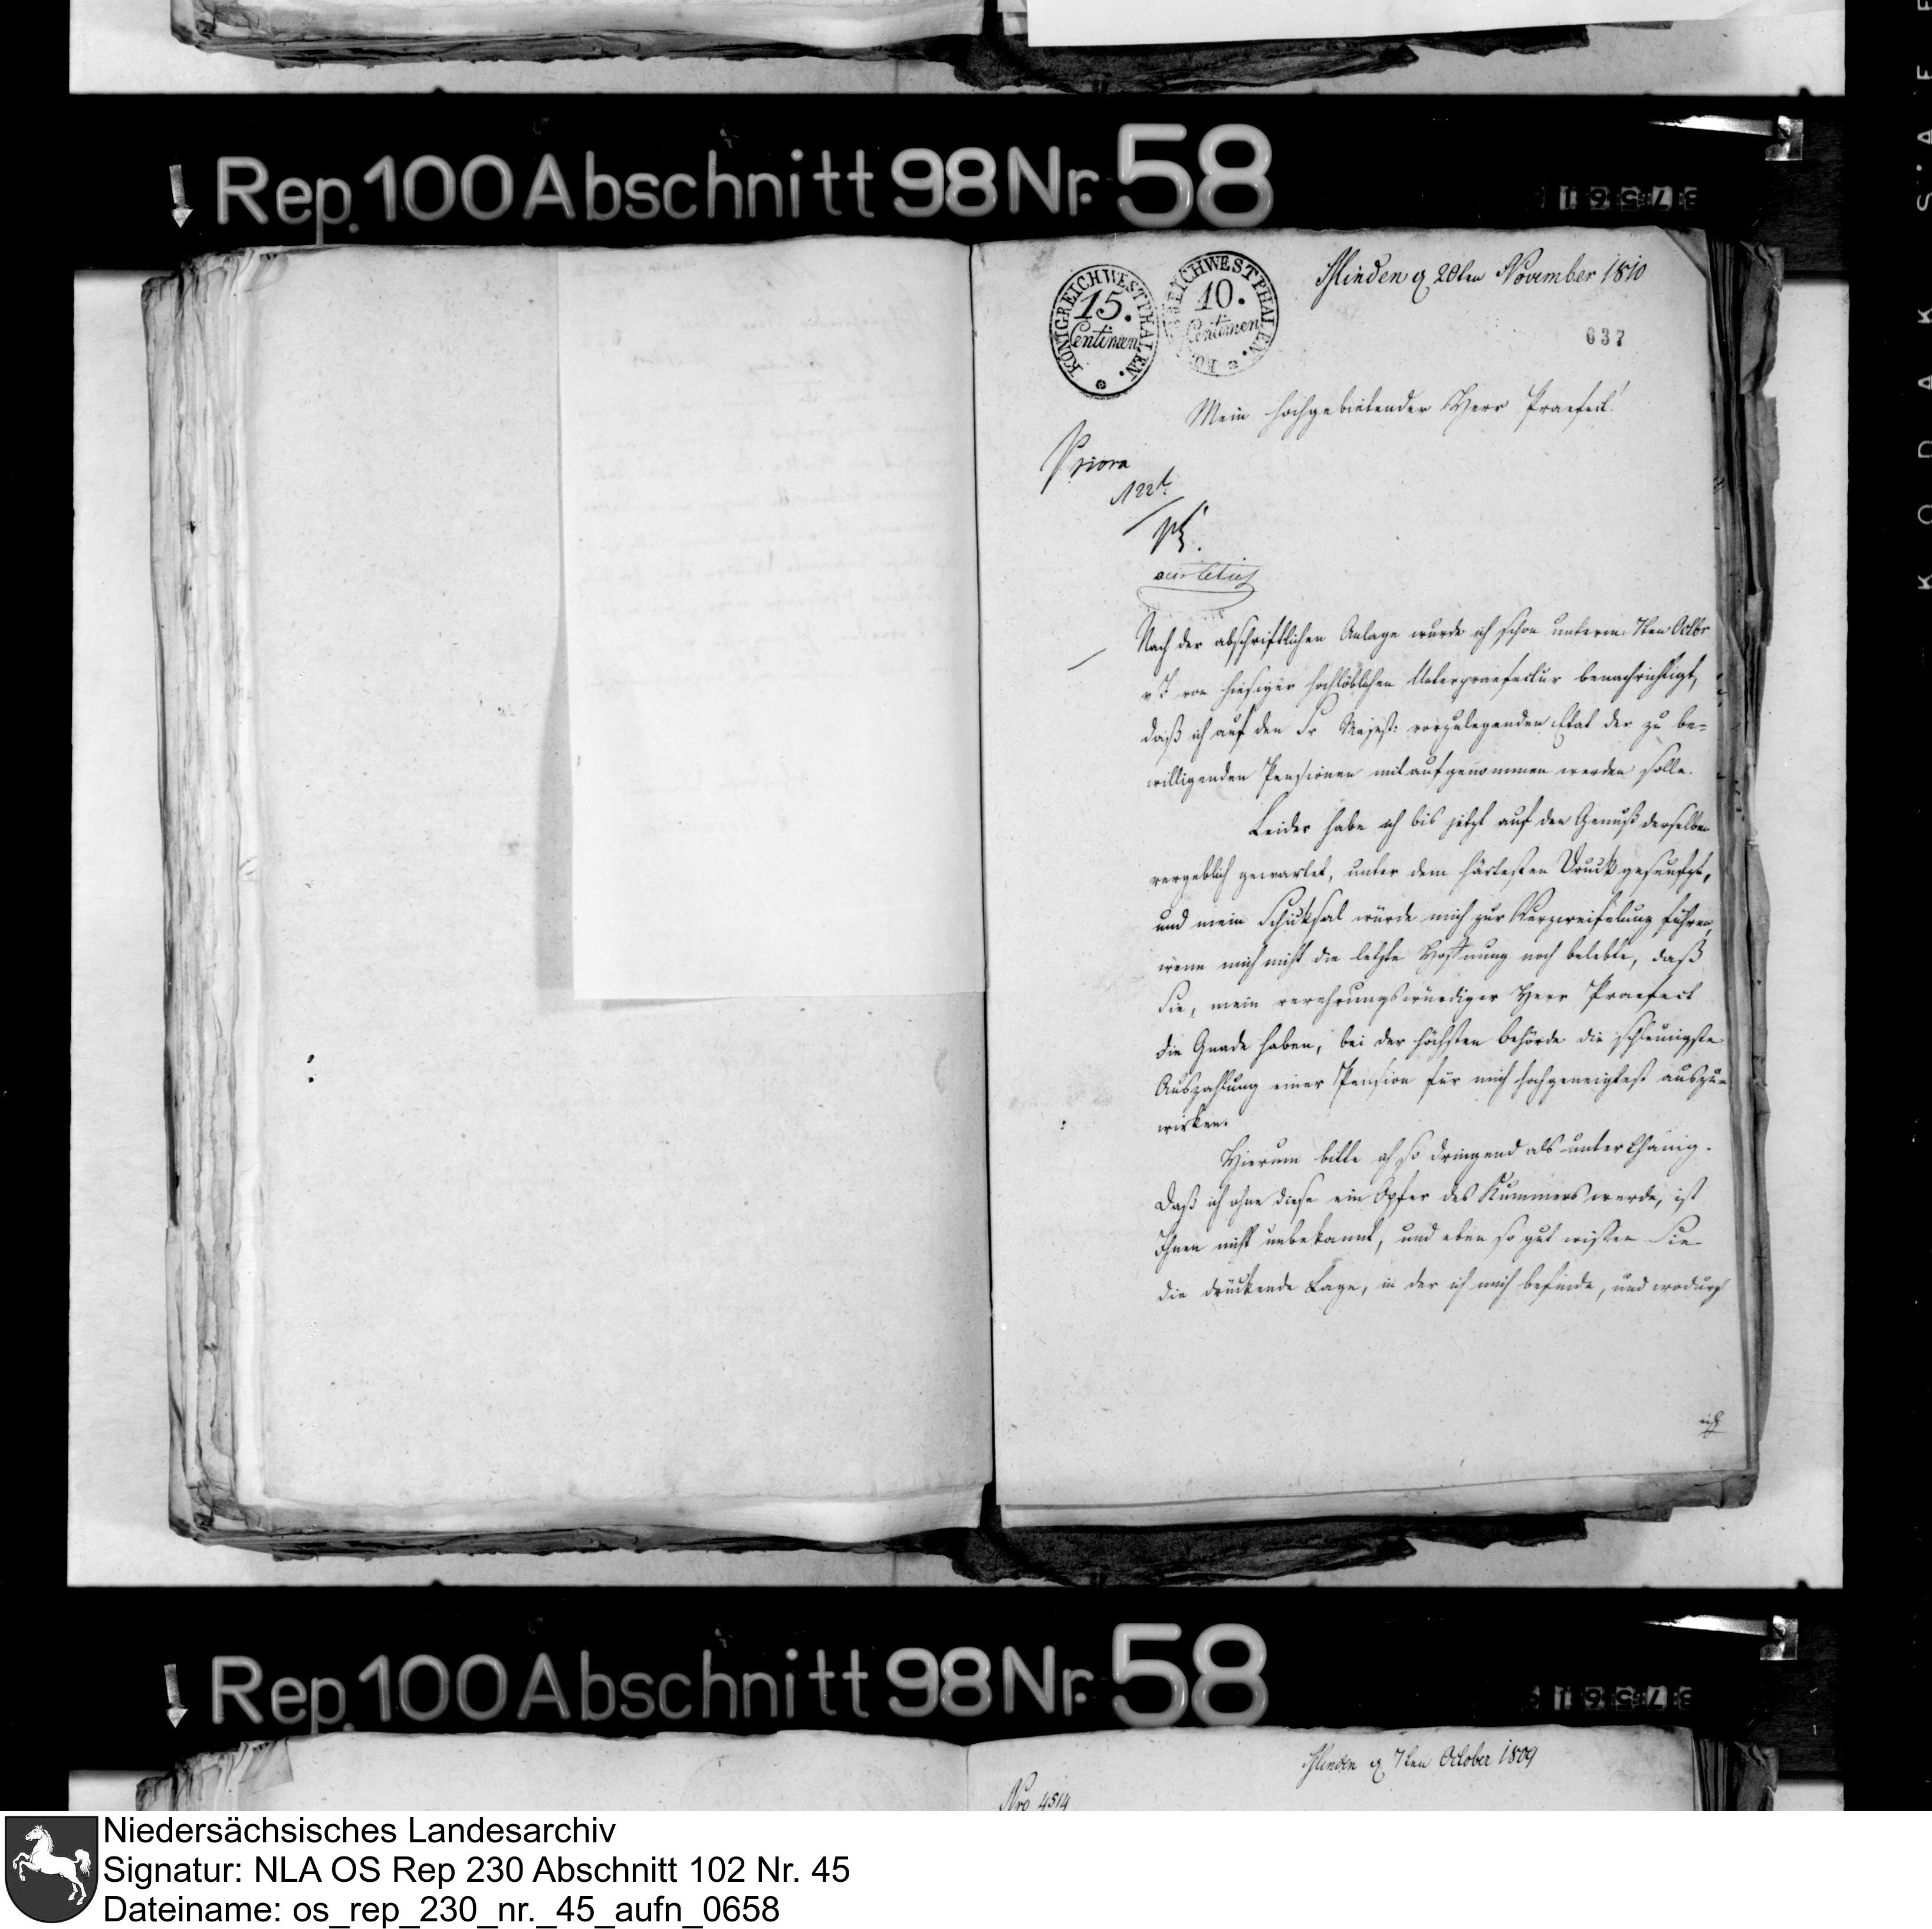 Rep. 100 Abschnitt 98 Nr. 58
KÖNIGREICH WESTPHALEN.
15.
Centimen
KÖNIGREICH WESTPHALEN.
10.
Centimen
Minden d 20ten November 1810
637
Mein hochgebietender Herr Praefect!
Priora
Nach der abschriftlichen Anlage wurde ich schon unterm 7ten Octbr
v J von hiesiger hochlöblichen Unterpraefectur benachrichtigt,
daß ich auf den Sr Majest: vorzulegenden Etat der zu be=
willigenden Pensionen mit aufgenommen werden solle.
Leider habe ich bis jetzt auf den Genuß derselben
vergeblich gewartet, unter dem härtesten Druck geseufzt,
und mein Schiksal würde mich zur Verzweifelung führen,
wenn mich nicht die letzte Hoffnung noch belebte, daß
Sie, mein verehrungswürdiger Herr Praefect
die Gnade haben, bei der höchsten Behörde die schleunigste
Auszahlung einer Pension für mich hochgeneigtest auszu=
wirken.
Hierum bitte ich so dringend als unterthänig.
Daß ich ohne diese ein Opfer des Kummers werde, ist
Ihnen nicht unbekannt, und eben so gut wißen Sie
die drückende Lage, in der ich mich befinde, und wodurch
ich
Rep. 100 Abschnitt 98 Nr. 58
Minden d 7ten October 1809
Nro 4514
KODAK SAFE
Niedersächsisches Landesarchiv
Signatur: NLA OS Rep 230 Abschnitt 102 Nr. 45
Dateiname: os_rep_230_nr._45_aufn_0658